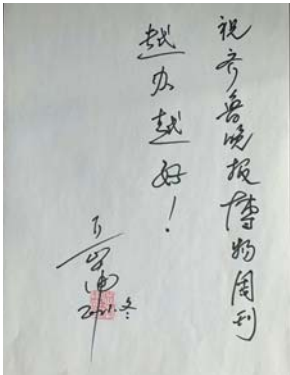 祝齐鲁晚报博物周刊
越办越好！
2021.冬